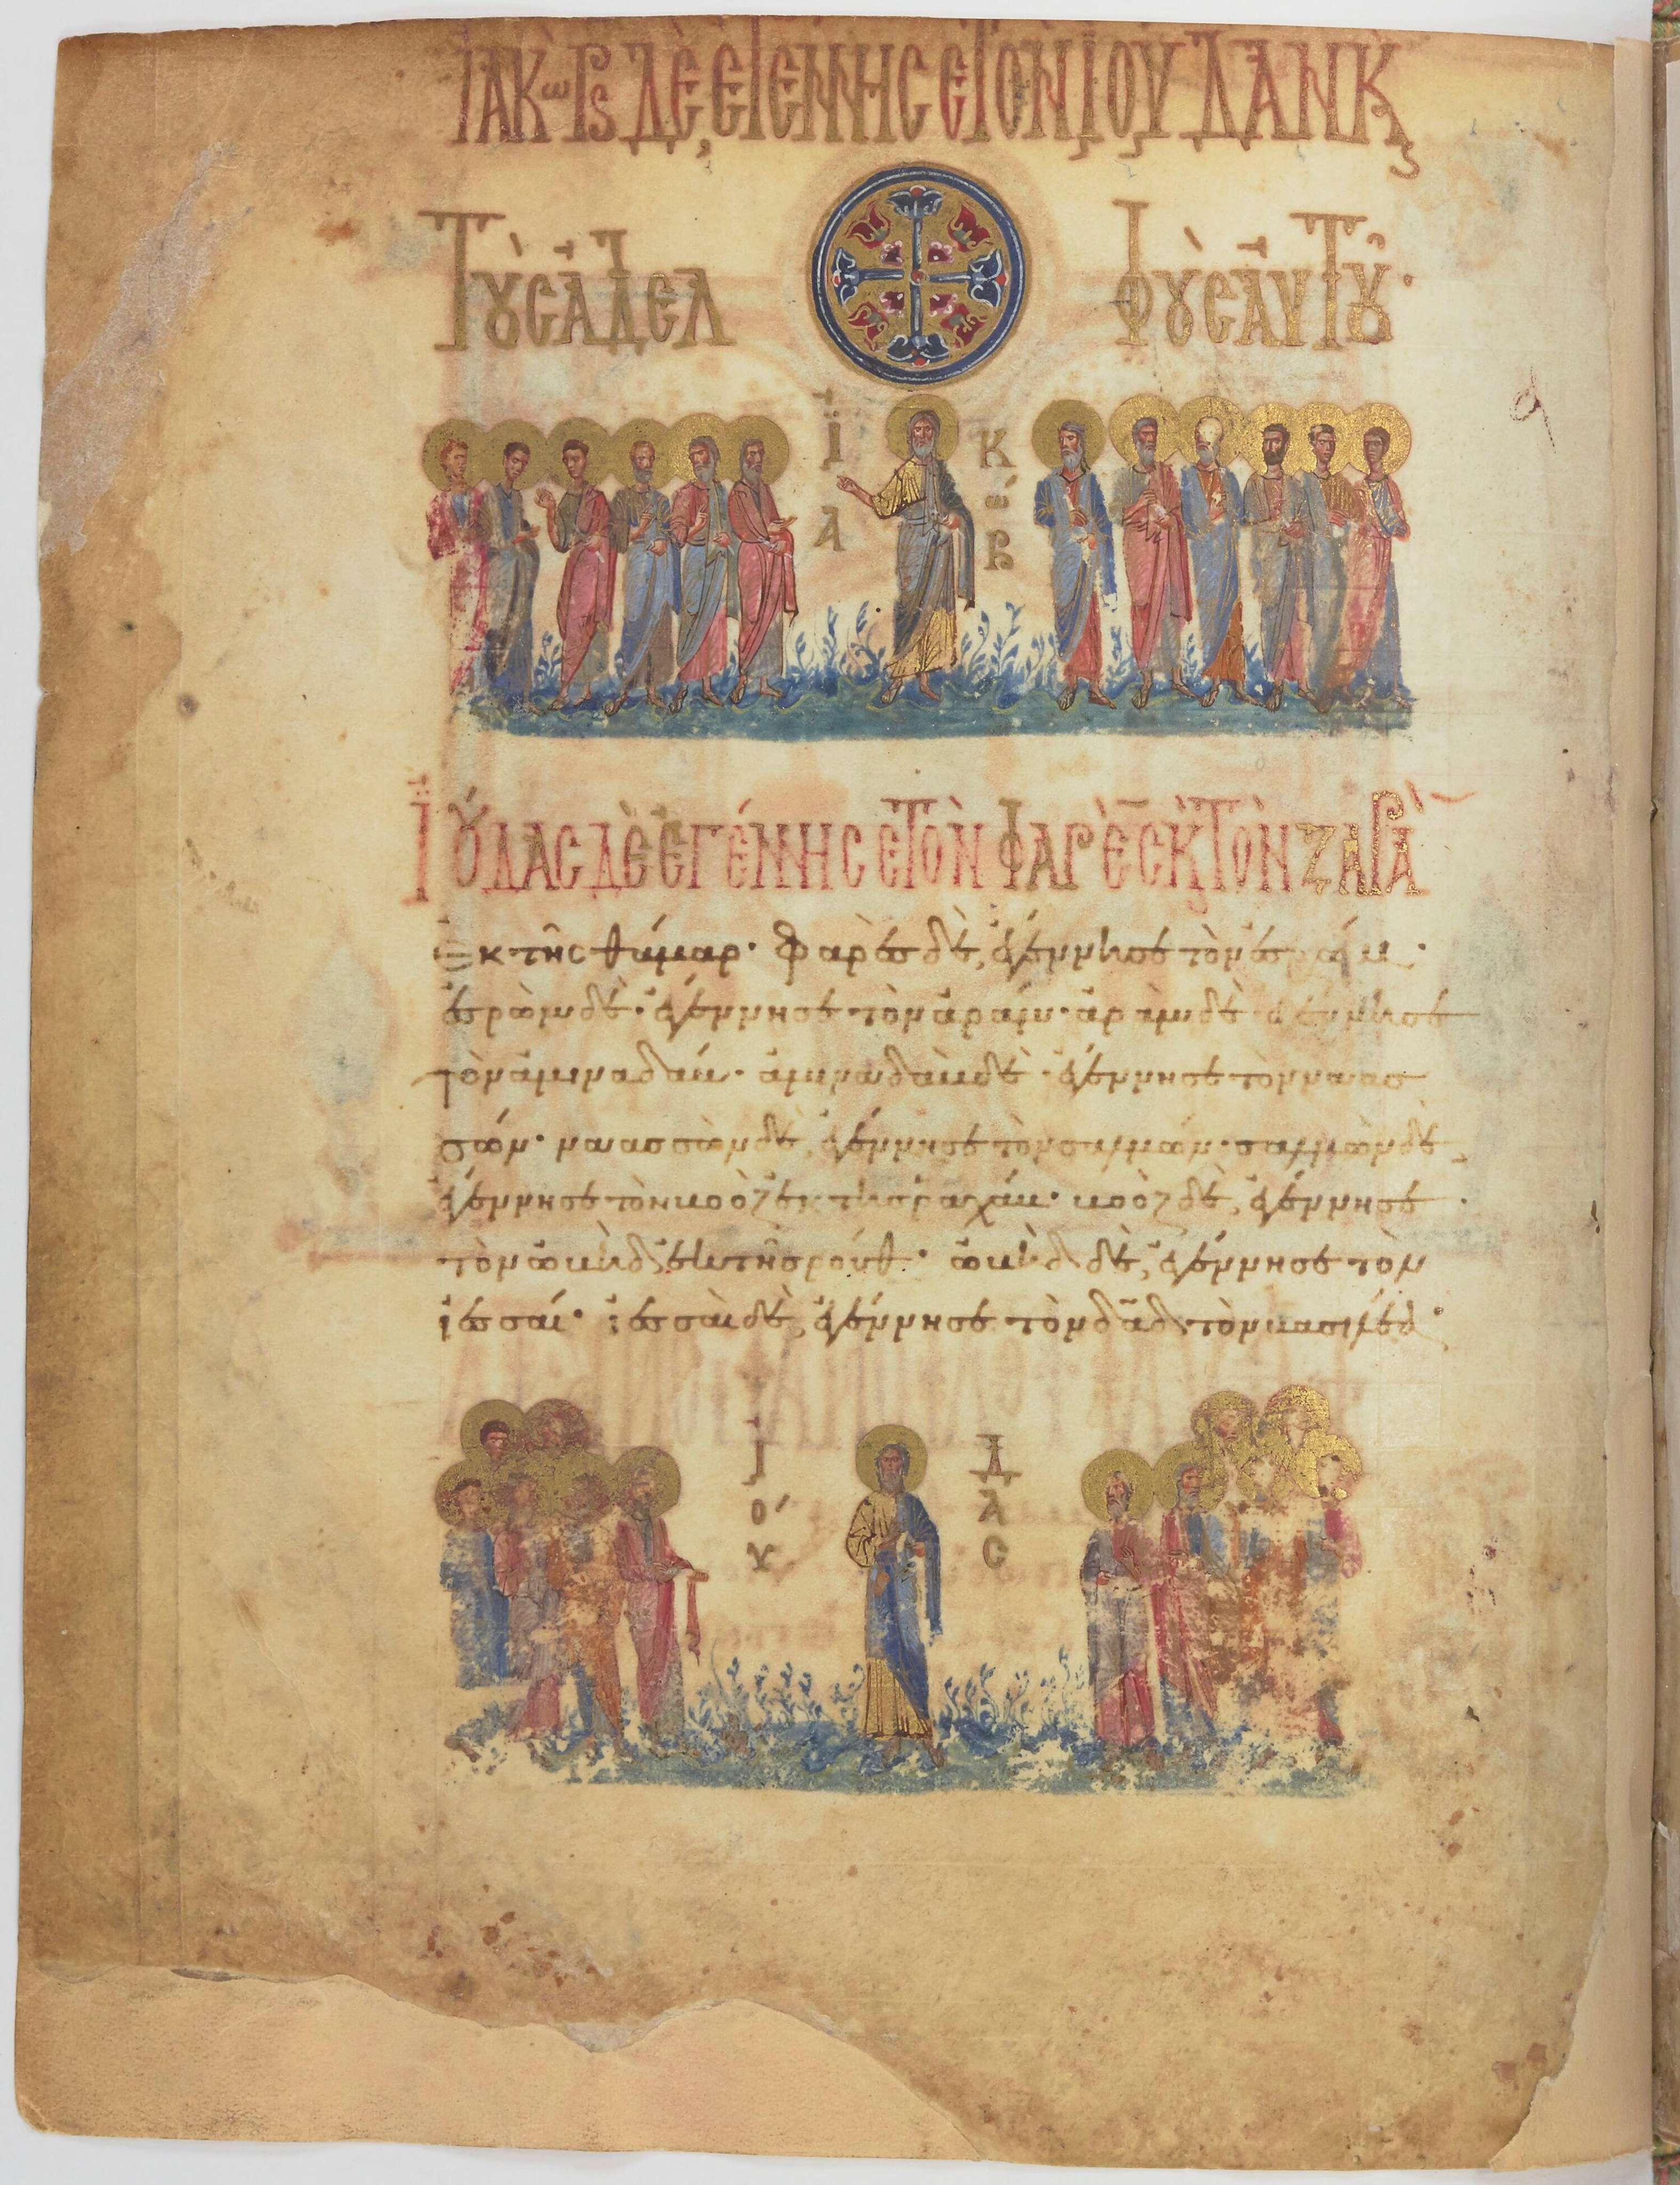 ΙΑΚωΒς ΔῈ ΕΓΕΝΝΗϹΕ ΤΟΝ ΙΟΥΔΑΝ Κ,
ΤȢ̀Ϲ ἈΔΕΛ ΦȢ̀Ϲ ἈΥΤȢ͂·
Ϊ Κ
Α ώ
Β
ΪȢ́ΔΑϹ ΔῈ ἘΓΈΝΝΗϹΕ ΤῸΝ ΦΑΡῈϹ Κ, ΤῸΝ ΖΑΡᾺ
Ἐκ τῆς θάμαρ· Φαρὲς δὲ, ἐγέννησε τὸν ἐσρώμ·
ἐσρὼμ δὲ· ἐγέννησε τὸν ἀράμ· ἀρὰμ δὲ ἐγέννησε
τὸν ἀμιναδάμ· ἀμιναδὰμ δὲ· ἐγέννησε τὸν ναασ
σών· ναασσὼν δὲ, ἐγέννησε τὸν σαλμών· σαλμὼν δὲ,
ἐγέννησε τὸν βοὸζ ἐκ τῆς ῥαχάβ· βοὸζ δὲ, ἐγέννησε
τὸν ὠβὴδ ἐκ τῆς ῥούθ· ὠβὴδ δὲ, ἐγέννησε τὸν
ἰεσσαί· ἰεσσαὶ δὲ, ἐγέννησε τὸν δᾱδ τὸν βασιλέα·
Ἰ Δ
ο´ Α
υ C